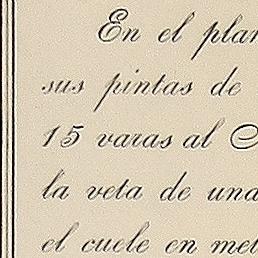 En el plan
sus pintas de
15 varas al
la veta de una
el cuele en met